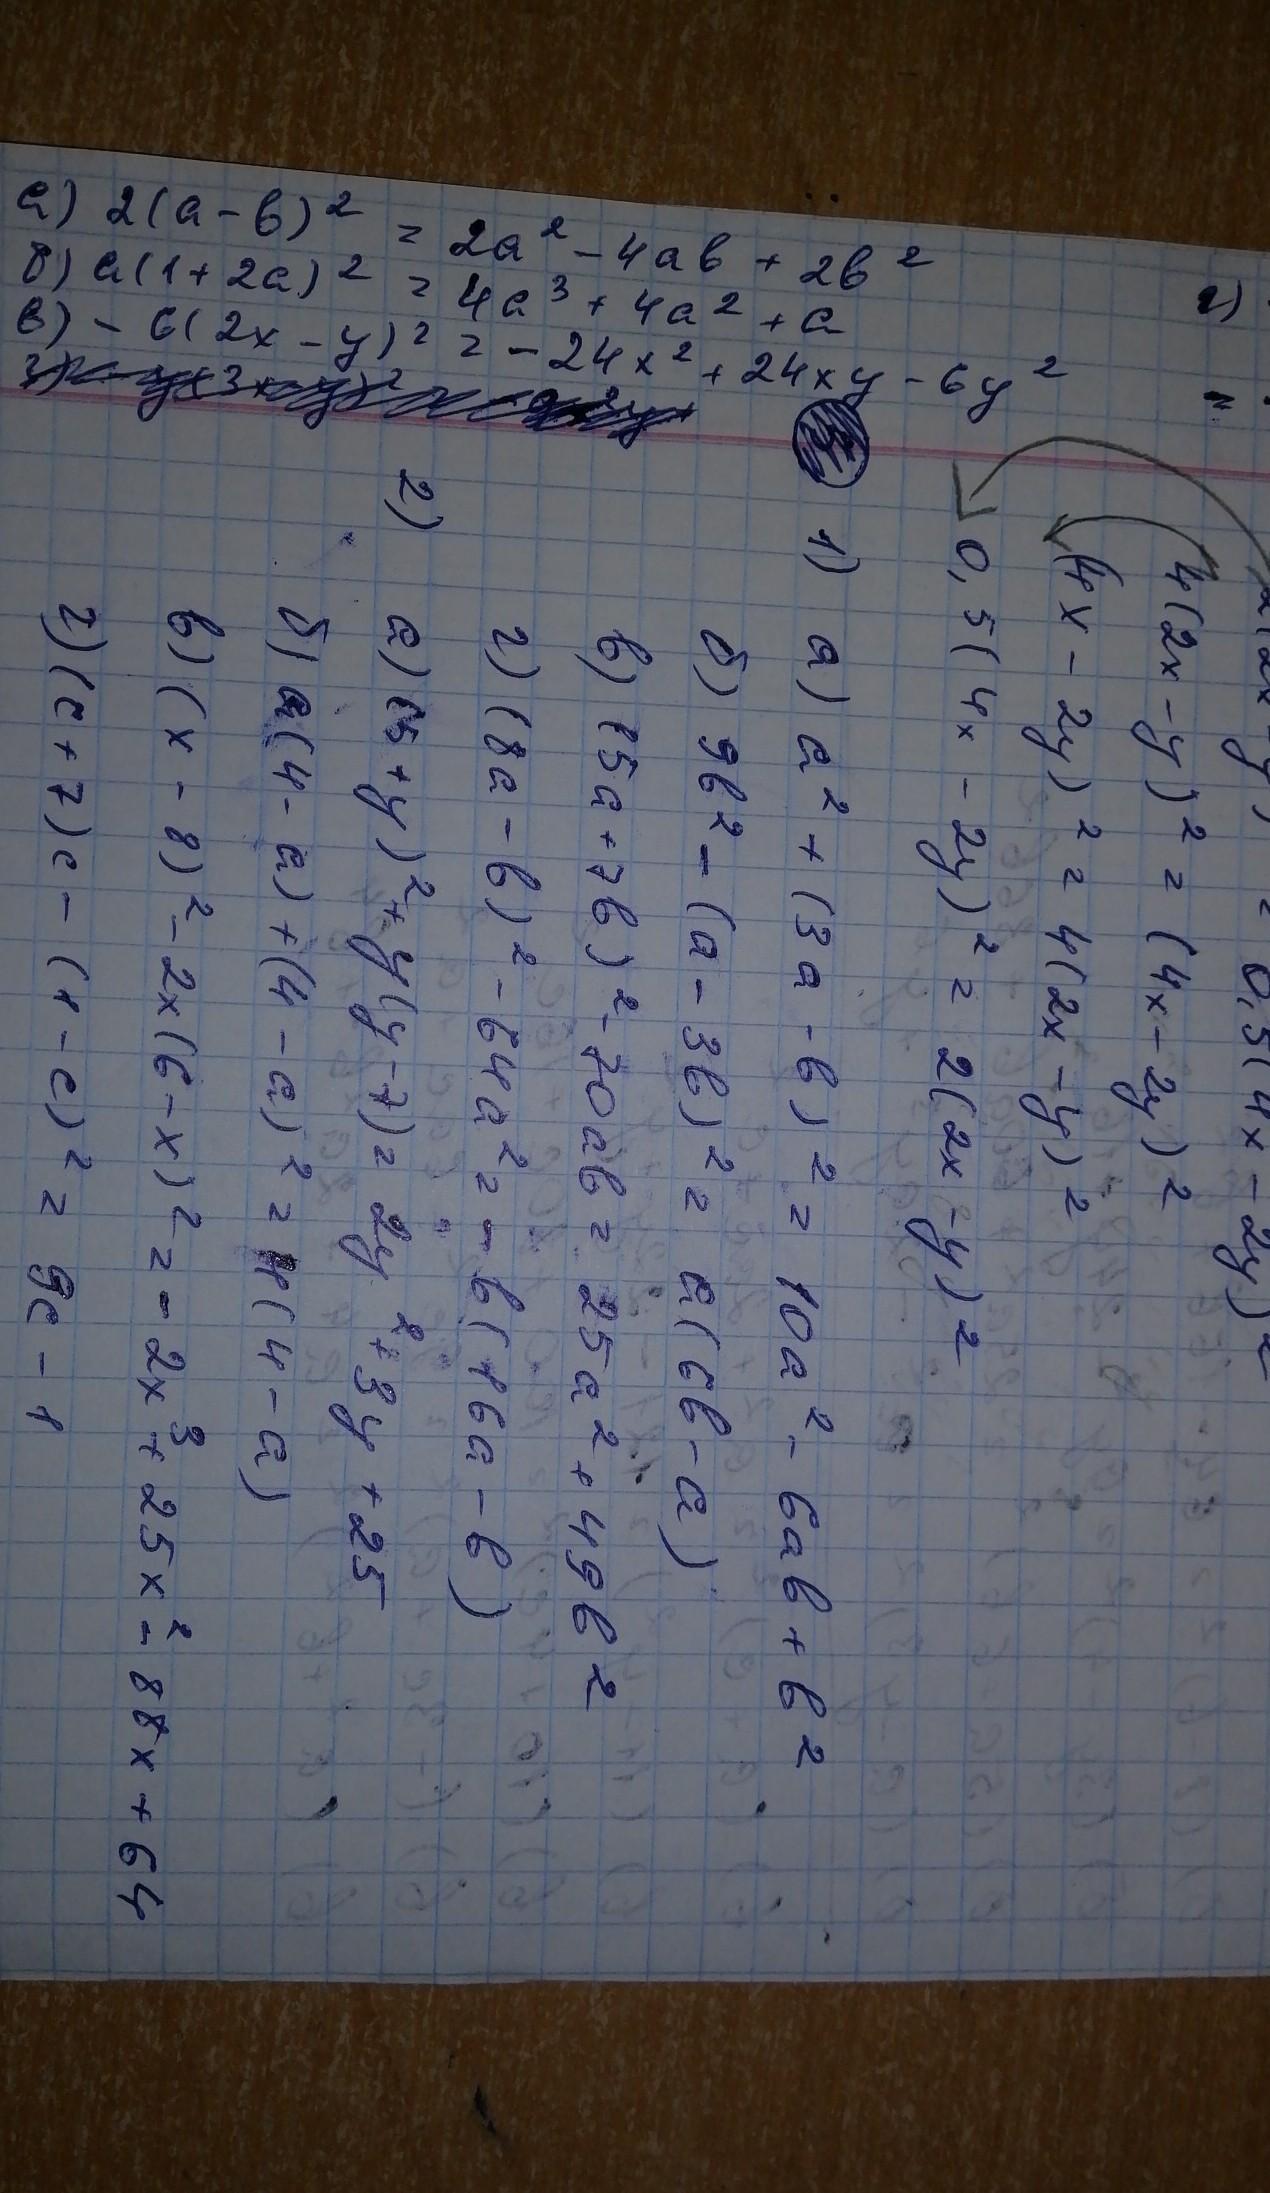 а) 2(a-b)² = 2a² - 4ab + 2b²
б) a(1+2a)² = 4a³ + 4a² + a
в) - 6(2x-y)² = -24x² + 24xy - 6y²
г)
=
= 0,5(4x-2y)²
4(2x-y)² = (4x-2y)²
(4x-2y)² = 4(2x-y)²
0,5(4x-2y)² = 2(2x-y)²
1) а) a² + (3a-b)² = 10a² - 6ab + b²
б) 9b² - (a-3b)² = a(6b-a)
в) (5a+7b)² - 70ab = 25a² + 49b²
г) (8a-b)² - 64a² = -b(16a-b)
2) а) (5+y)² + y(y-7) = 2y² + 3y + 25
б) a(4-a) + (4-a)² = 4(4-a)
в) (x-8)² - 2x(6-x)² = -2x³ + 25x² - 88x + 64
г) (c+7)c - (1-c)² = 9c - 1